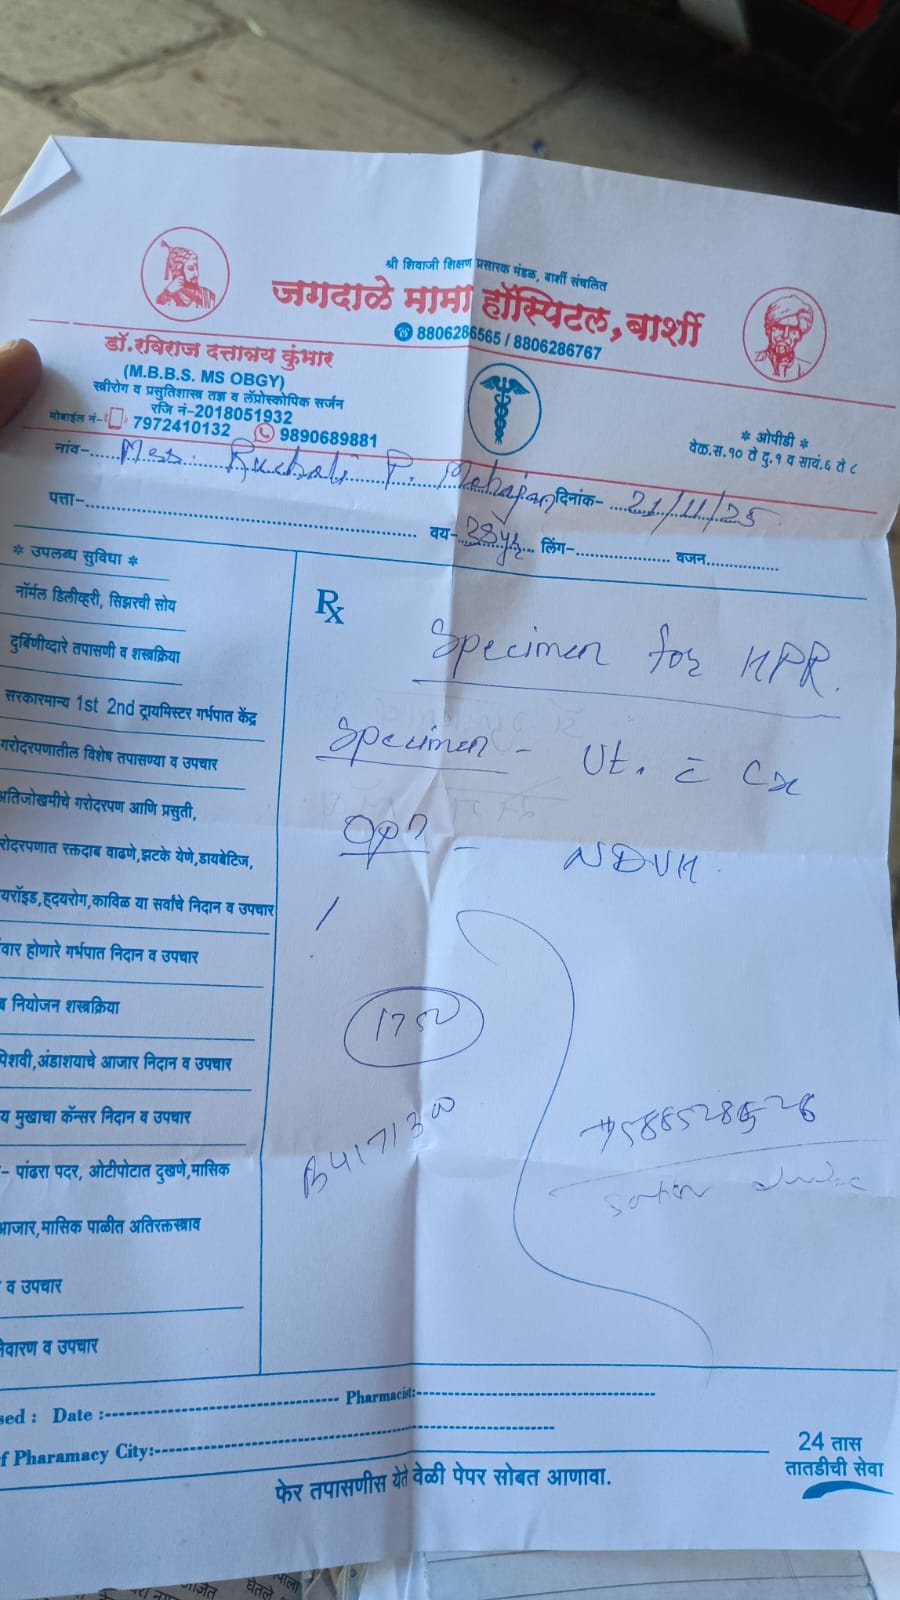 श्री शिवाजी शिक्षण प्रसारक मंडळ, बार्शी संचलित
जगदाळे मामा हॉस्पिटल, बार्शी
8806286565 / 8806286767
डॉ. रविराज दत्तात्रय कुंभार
(M.B.B.S. MS OBGY)
स्त्रीरोग व प्रसुतिशास्त्र तज्ञ व लॅप्रोस्कोपिक सर्जन
रजि नं-2018051932
मोबाईल नं- 7972410132 9890689881
* ओपीडी *
वेळ.स.१० ते दु.१ व सायं.६ ते ८
नांव- P. Mahajan दिनांक- 21/11/25
पत्ता- वय- 38yr लिंग- वजन
* उपलब्ध सुविधा *
नॉर्मल डिलीव्हरी, सिझरची सोय
दुर्बिणीव्दारे तपासणी व शस्त्रक्रिया
सरकारमान्य 1st 2nd ट्रायमिस्टर गर्भपात केंद्र
गरोदरपणातील विशेष तपासण्या व उपचार
अतिजोखमीचे गरोदरपण आणि प्रसुती,
रोदरपणात रक्तदाब वाढणे,झटके येणे,डायबेटिज,
यरॉइड,हृदयरोग,काविळ या सर्वांचे निदान व उपचार
वार होणारे गर्भपात निदान व उपचार
नियोजन शस्त्रक्रिया
पिशवी,अंडाशयाचे आजार निदान व उपचार
य मुखाचा कॅन्सर निदान व उपचार
- पांढरा पदर, ओटीपोटात दुखणे,मासिक
आजार,मासिक पाळीत अतिरक्तस्त्राव
व उपचार
नेवारण व उपचार
Rx
Specimen for HPR.
Specimen - Ut. c̄ Cx
Opn - NDVH.
1750
B417130
sed : Date : Pharmacist:
f Pharamacy City:
24 तास
तातडीची सेवा
फेर तपासणीस येते वेळी पेपर सोबत आणावा.